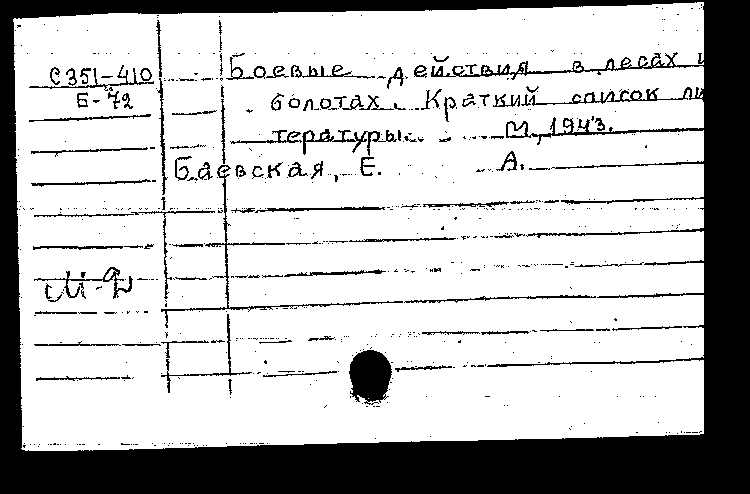 С351-410
Б-72
Боевые действия в лесах и
болотах. Краткий список ли
тературы. М., 1943.
Баевская, Е. А.